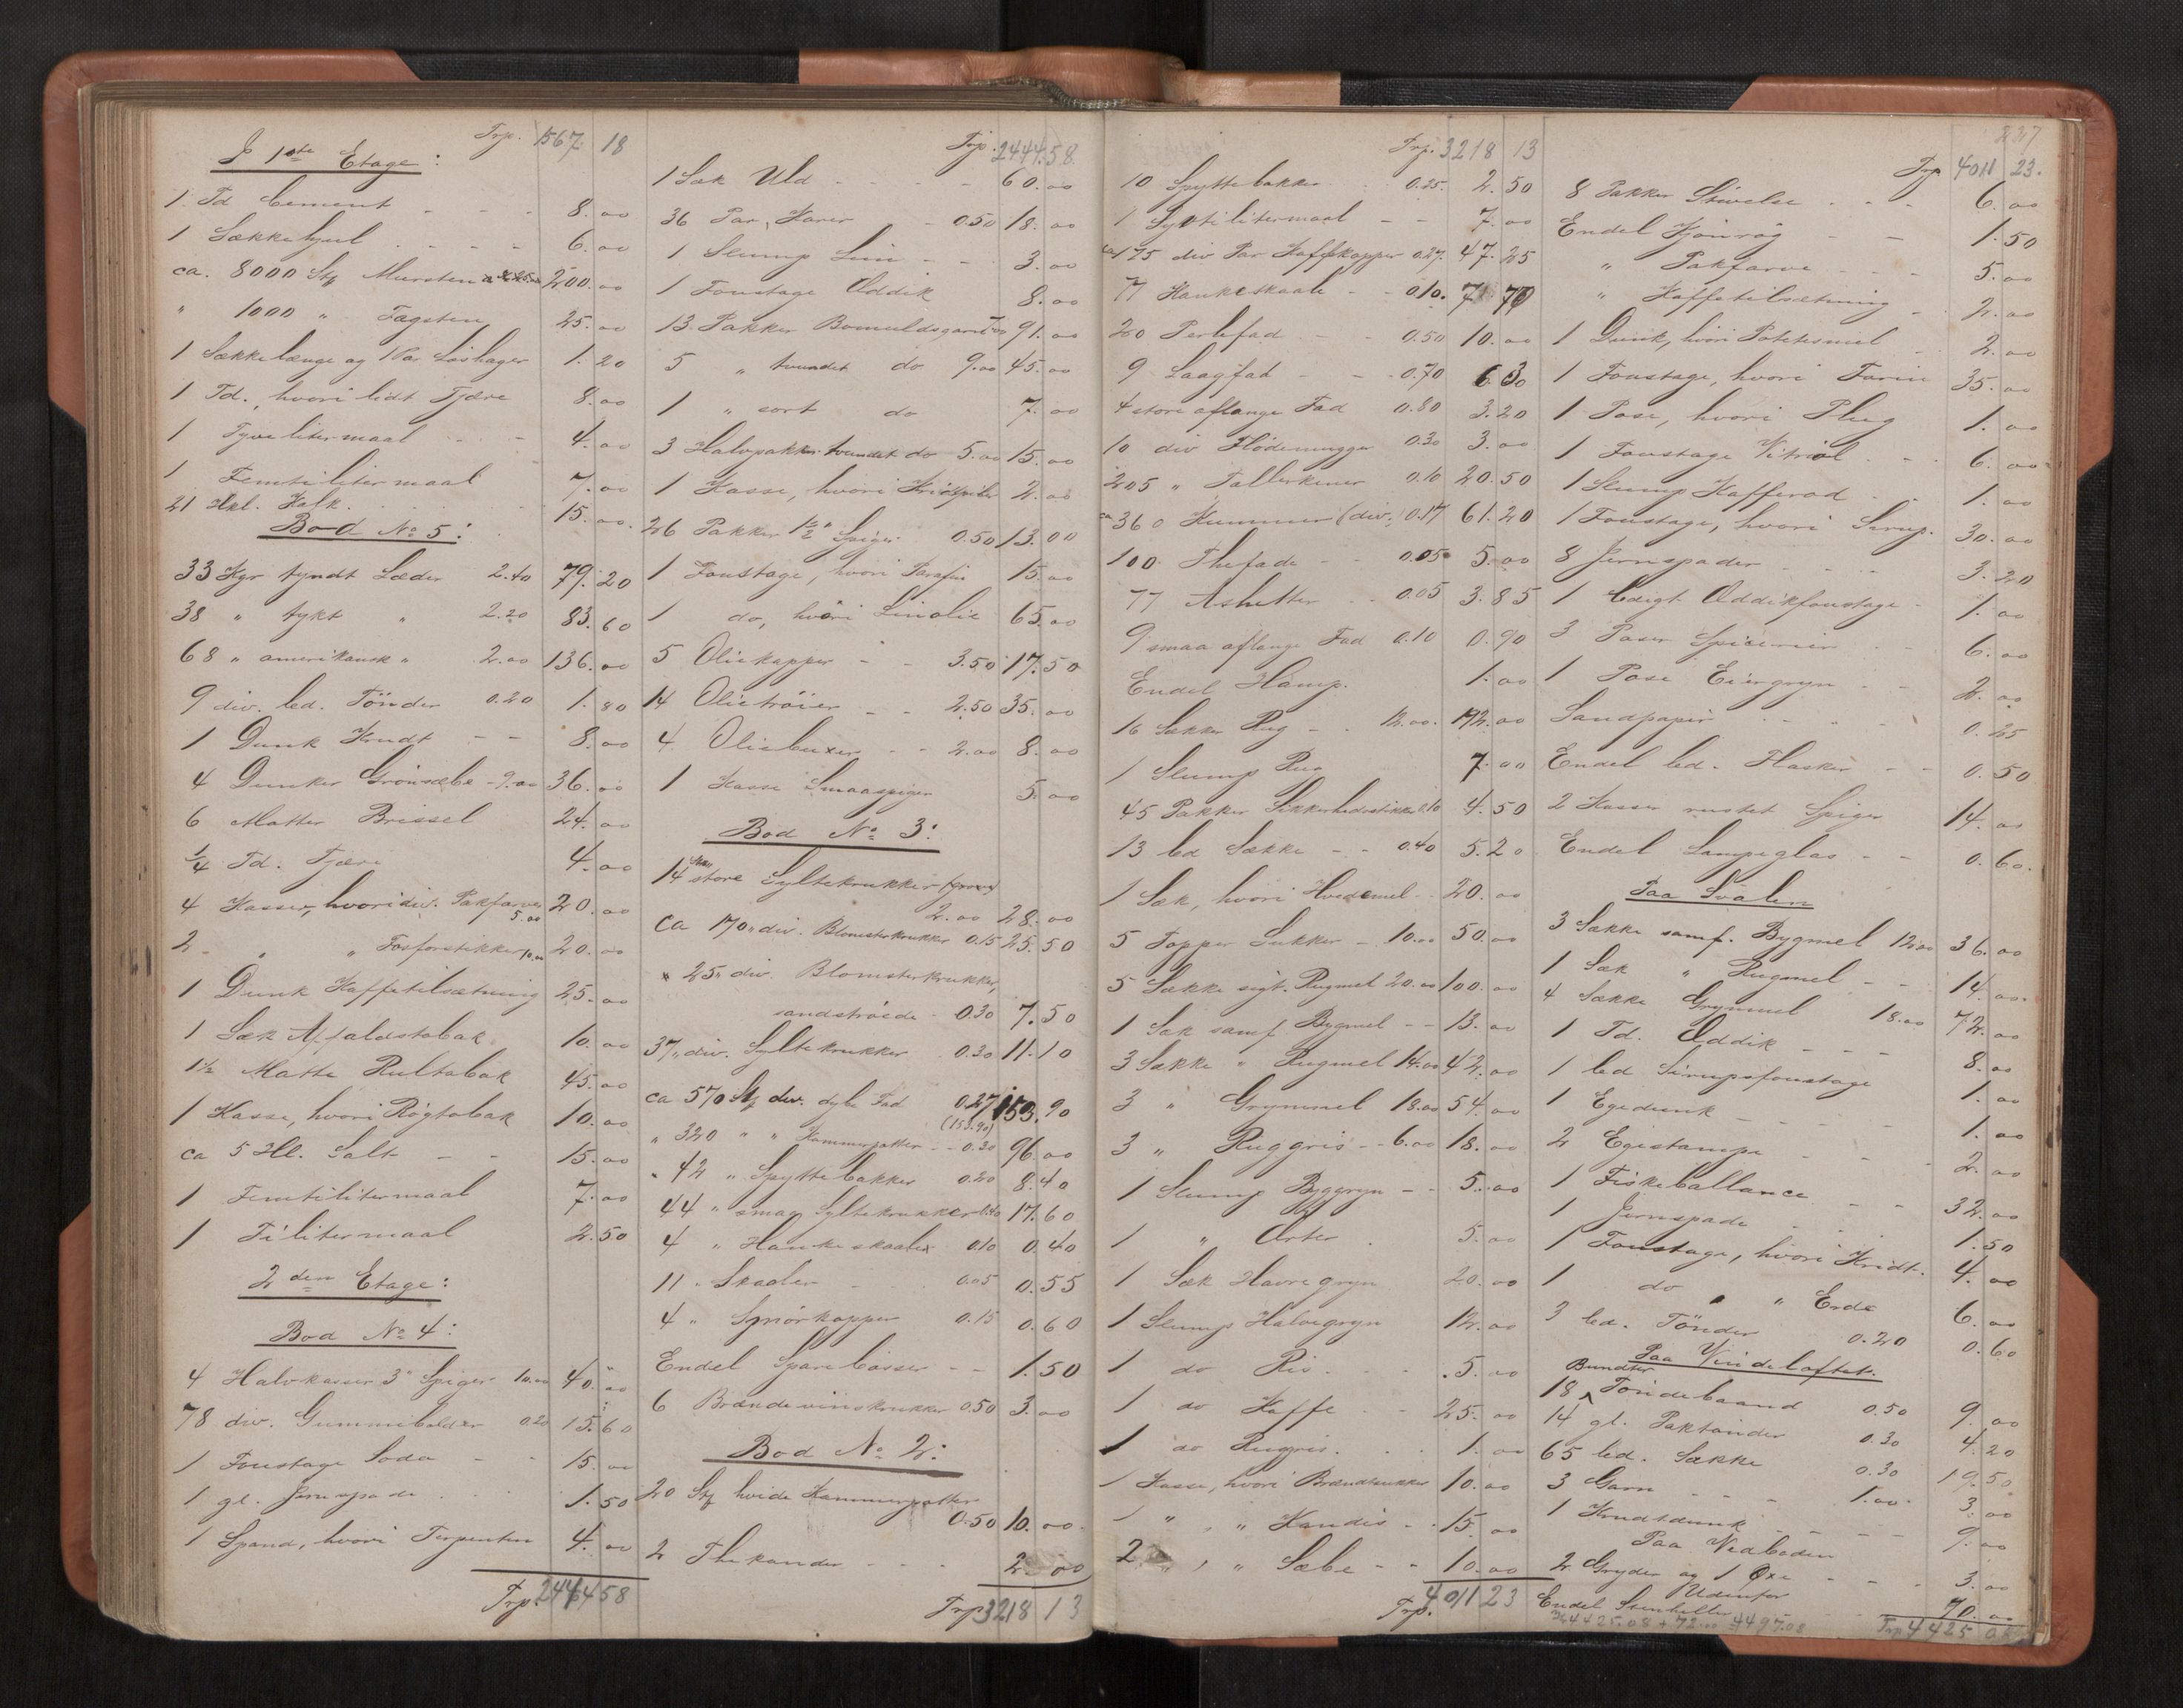 Trp. 1567 18
I 1ste Etage:
1. Td Cement - - - 8. 00
1 Sækkehjul - - - - 6. 00
ca. 8000 Stk Mursten a 25.00 200. 00
" 1000 " Tagsten 25. 00
1 Sækkelænge og 1 Par Løshager 1. 20
1 Td., hvori lidt Tjære 8. 00
1 Tyvelitermaal - - - 4. 00
1 Femtilitermaal 7. 00
21 Hkl. Kalk 15. 00.
Bod No 5:
33 Kgr tyndt Læder 2.40 79. 20
38 " tykt " 2.20 83. 60
68 " amerikansk " 2.00 136. 00
9 div. led. Tönder 0.20 1. 80
1 Dunk Krudt - - 8. 00
4 Dunker Grönsæbe - 9.00 36. 00
6 Matter Brissel 24. 00
1/4 Td. Tjære 4. 00
4 Kasser, hvori div. Pakfarve 5.00 20. 00
2 " " Fosforstikker 10.00 20. 00
1 Dunk Kaffetilsætning 25. 00
1 Sæk Affaldstobak 10. 00
1 1/2 Matte Rultobak 45. 00
1 Kasse, hvori Røgtobak 10. 00
ca 5 Hl. Salt - - 15. 00
1 Femtilitermaal 7. 00
1 Tilitermaal 2. 50
2den Etage:
Bod No 4:
4 Halvkasser 3" Spiger 10.00 40. 00
78 div. Gummibolder 0.20 15. 60
1 Foustage Soda - - 15. 00
1 gl. Jernspade 1. 50
1 Spand, hvori Terpentin 4. 00
Trp. 2444 58
Trp. 2444. 58.
1 Sæk Uld - - - - 60. 00
36 Par Karer - 0.50 18. 00
1 Slump Lim - - 3. 00
1 Foustage Eddik 8. 00
13 Pakker Bomuldsgarn 7.00 91. 00
5 " tvundet do 9.00 45. 00
1 " sort do 7. 00
3 Halvpakker tvundet do 5.00 15. 00
1 Kasse, hvori Kridtpiber 2. 00
26 Pakker 1 1/2" Spiger 0.50 13. 00
1 Foustage, hvori Parafin 15. 00
1 do, hvori Linolie 65. 00
5 Oliekapper - - 3.50 17. 50
14 Olietröier - - 2.50 35. 00
4 Oliebuxer - - 2.00 8. 00
1 Kasse Smaaspiger 5. 00
Bod No 3:
14 store Syltekrukker (grove)
2.00 28. 00
Ca 170 div. Blomsterkrukker 0.15 25. 50
" 25 div. Blomsterkrukker,
sandströede - 0.30 7. 50
37 div. Syltekrukker 0.30 11. 10
ca 570 Stk div. dybe Fad 0.27 153. 90
(153.90)
" 320 " " Kammerpotter - - 0.30 96. 00
" 42 " Spyttebakker 0.20 8. 40
44 " smaa Syltekrukker 0.40 17. 60
4 " Hankeskaaler 0.10 0. 40
11 " Skaaler 0.05 0. 55
4 " Smörkopper 0.15 0. 60
Endel Sparebösser - - 1. 50
6 Brændevinskrukker 0.50 3. 00
Bod No 2:
20 Stk hvide Kammerpotter
0.50 10. 00.
2 Thekander - - - 2. 00
Trp 3218 13
Trp. 3218 13
10 Spyttebakker 0.25. 2. 50
1 Syttilitermaal - - 7. 00
ca 175 div Par Kaffekopper 0.27. 47. 25
77 Hankeskaale - - 0.10. 7. 70
20 Perlefad - - 0.50 10. 00
9 Laagfad - - 0.70 6 30
4 store aflange Fad 0.80 3. 20
10 div Flödemugger 0.30 3. 00
205 " Tallerkener 0.10 20. 50
ca 360 Kummer (div.) 0.17 61. 20
100 Thefade - - 0.05 5. 00
77 Ashetter - - 0.05 3. 85
9 smaa aflange Fad 0.10 0. 90
Endel Hamp. 1. 00
16 Sækker Rug - - 12.00. 192. 00
1 Slump Rug 7. 00
45 Pakker Sikkerhedsstikker 0.10 4. 50
13 led Sække - - 0.40 5. 20
1 Sæk, hvori Hvedemel - 20. 00
5 Topper Sukker - 10.00 50. 00
5 Sække sigt. Rugmel 20.00 100. 00
1 Sæk samf. Bygmel - - 13. 00
3 Sække " Rugmel 14.00 42. 00
3 " Grynmel 18.00 54. 00
3 " Ruggris - - 6.00 18. 00
1 Slump Byggryn - - 5. 00
1 " Erter 5. 00
1 Sæk Havregryn 20. 00
1 Slump Halvegryn 12. 00
1 do Ris - - 5. 00
1 do Kaffe - - 25. 00
1 do Rugris. 1. 00
1 Kasse, hvori Brændtsukker 10. 00
1 " , " Kandis - 15. 00
2 " , " Sæbe - - 10. 00
Trp. 4011 23
237
Trp 4011 23.
8 Pakker Stivelse - - - 6. 00
Endel Kjönrög - - 1. 50
" Pakfarve - - - 5. 00
" Kaffetilsætning - 2. 00
1 Dunk, hvori Potetesmel 2. 00
1 Foustage, hvori Farin 35. 00
1 Pose, hvori Plug 1. 00
1 Foustage Vitriol - - 6. 00
1 Slump Kafferod - - 1. 00
1 Foustage, hvori Sirup. 30. 00
8 Jernspader - - - 3. 20
1 ledigt Eddikfoustage - 1. 00
3 Poser Spicerier - - 6. 00
1 Pose Eiergryn - - 2. 00
Sandpapir - - - - 0. 25
Endel led. Flasker - - 0. 50
2 Kasser rustet Spiger 14. 00
Endel Lampeglas - - 0. 60.
Paa Svalen
3 Sække samf. Bygmel 12.00 36. 00
1 Sæk " Rugmel - - 14. 00.
4 Sække Grynmel 18.00 72. 00
1 Td. Eddik - - - 8. 00
1 led Sirupsfoustage 1. 00
1 Egedunk - - - - 1. 00
2 Egestampe - - - 2. 00
1 Fiskeballance - - 32. 00
1 Jernspade - - 1. 50
1 Foustage, hvori Kridt. 4. 00
1 do " " Erde 6. 00
3 led. Tönder 0.20 0. 60
Paa Vindeloftet.
Bundter
18 Töndebaand 0.50 9. 00
14 gl. Paktönder 0.30 4. 20
65 led. Sække 0.30 19. 50
3 Garn - - - 1.00. 3. 00
1 Krudtdunk - - - - 9. 00
Paa Vedboden
2 Gryder og 1 Øxe - - - 3. 00
Udenfor
Endel Steinheller 70. 00
4425.08 + 72.00 = 4497.08 Trp 4425 08